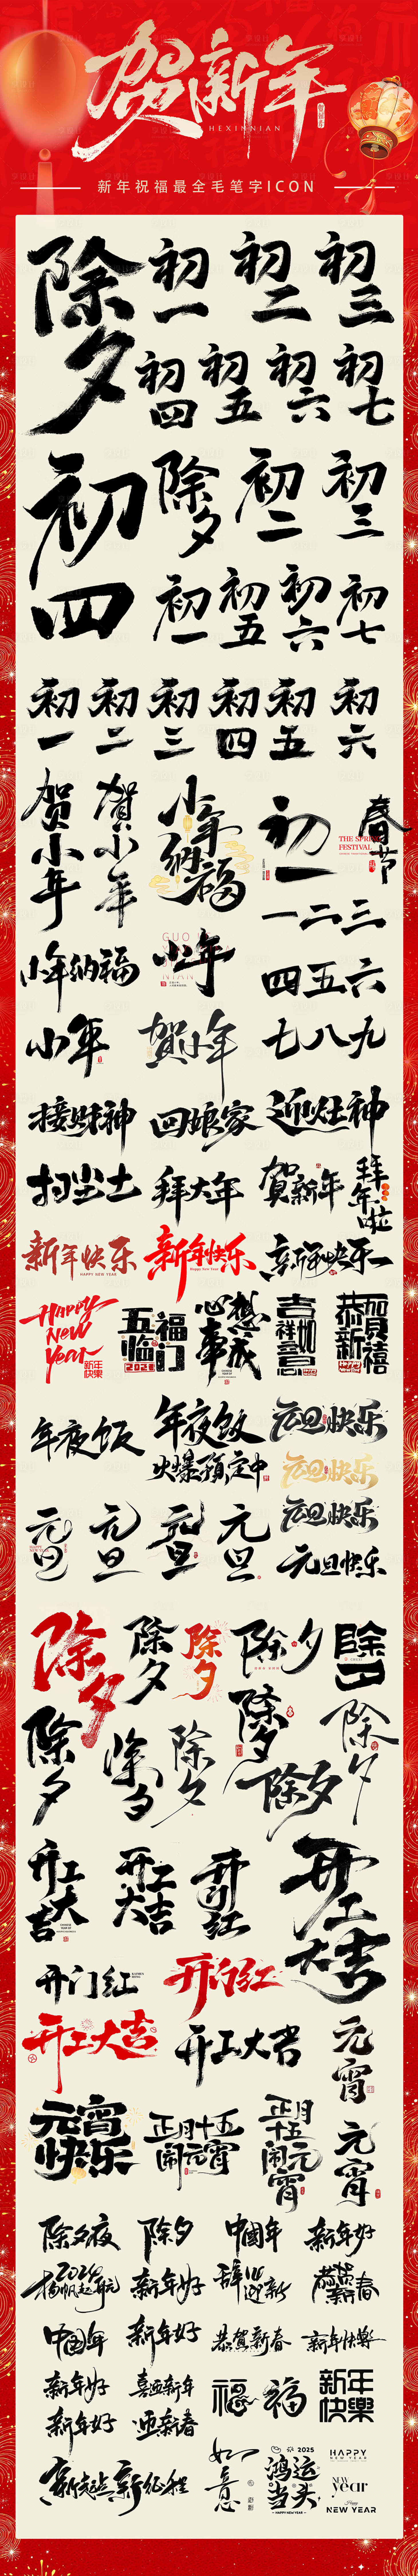 贺新年
HEXINNIAN
新年祝福最全毛笔字ICON
除夕
初一
初二
初三
初四
初五
初六
初七
初四
除夕
初二
初三
初一
初五
初六
初七
初一
初二
初三
初四
初五
初六
贺小年
賀小年
小年纳福
初一
春节
THE SPRING
FESTIVAL
一二三
小年纳福
小年
四五六
小年
賀小年
七八九
接财神
回娘家
迎灶神
扫尘土
拜大年
贺新年
拜年啦
新年快乐
HAPPY NEW YEAR
新年快乐
Happy New Year
新年快乐
Happy
New
Year
新年
快樂
五福
临门
心想
事成
吉祥如意
恭賀新禧
年夜饭
年夜饭
火爆预定中
元旦快乐
元旦快乐
元旦快乐
元旦快乐
元旦
元旦
元旦
元旦
除夕
除夕
除夕
除夕
除夕
除夕
除夕
除夕
除夕
除夕
除夕
开工大吉
开工大吉
开门红
开工大吉
开门红
开门红
开工大吉
开工大吉
元宵
元宵
快乐
正月十五
闹元宵
正月
十五
闹元宵
元宵
除夕夜
除夕
中國年
新年好
2024
扬帆起航
新年好
辞旧迎新
恭贺新春
中国年
新年好
恭贺新春
新年快樂
新年好
喜迎新年
福
福
新年
快樂
新年好
迎新春
新起点 新征程
如意
2025
鸿运
当头
HAPPY NEW YEAR
HAPPY
NEW YEAR
NEW
year
Happy
NEW YEAR